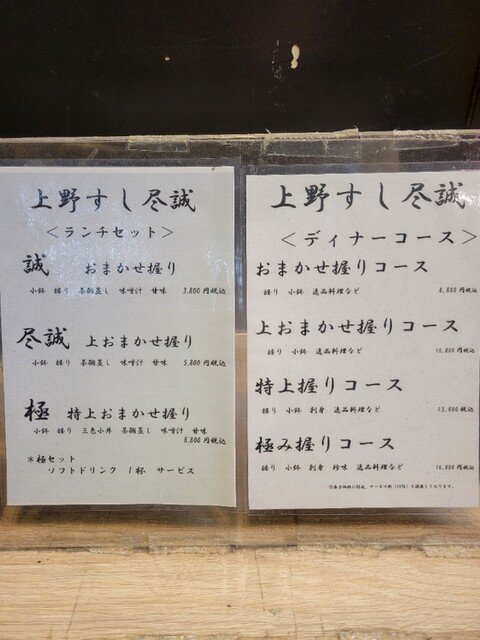 上野すし尽誠
＜ランチセット＞
誠 おまかせ握り
小鉢 握り 茶碗蒸し 味噌汁 甘味 3,800円税込
尽誠 上おまかせ握り
小鉢 握り 茶碗蒸し 味噌汁 甘味 5,800円税込
極 特上おまかせ握り
小鉢 握り 三色小丼 茶碗蒸し 味噌汁 甘味
8,800円税込
※極セット
ソフトドリンク 1杯 サービス
上野すし尽誠
＜ディナーコース＞
おまかせ握りコース
握り 小鉢 逸品料理など 8,800円税込
上おまかせ握りコース
握り 小鉢 逸品料理など 10,800円税込
特上握りコース
握り 小鉢 刺身 逸品料理など 13,800円税込
極み握りコース
握り 小鉢 刺身 珍味 逸品料理など 16,800円税込